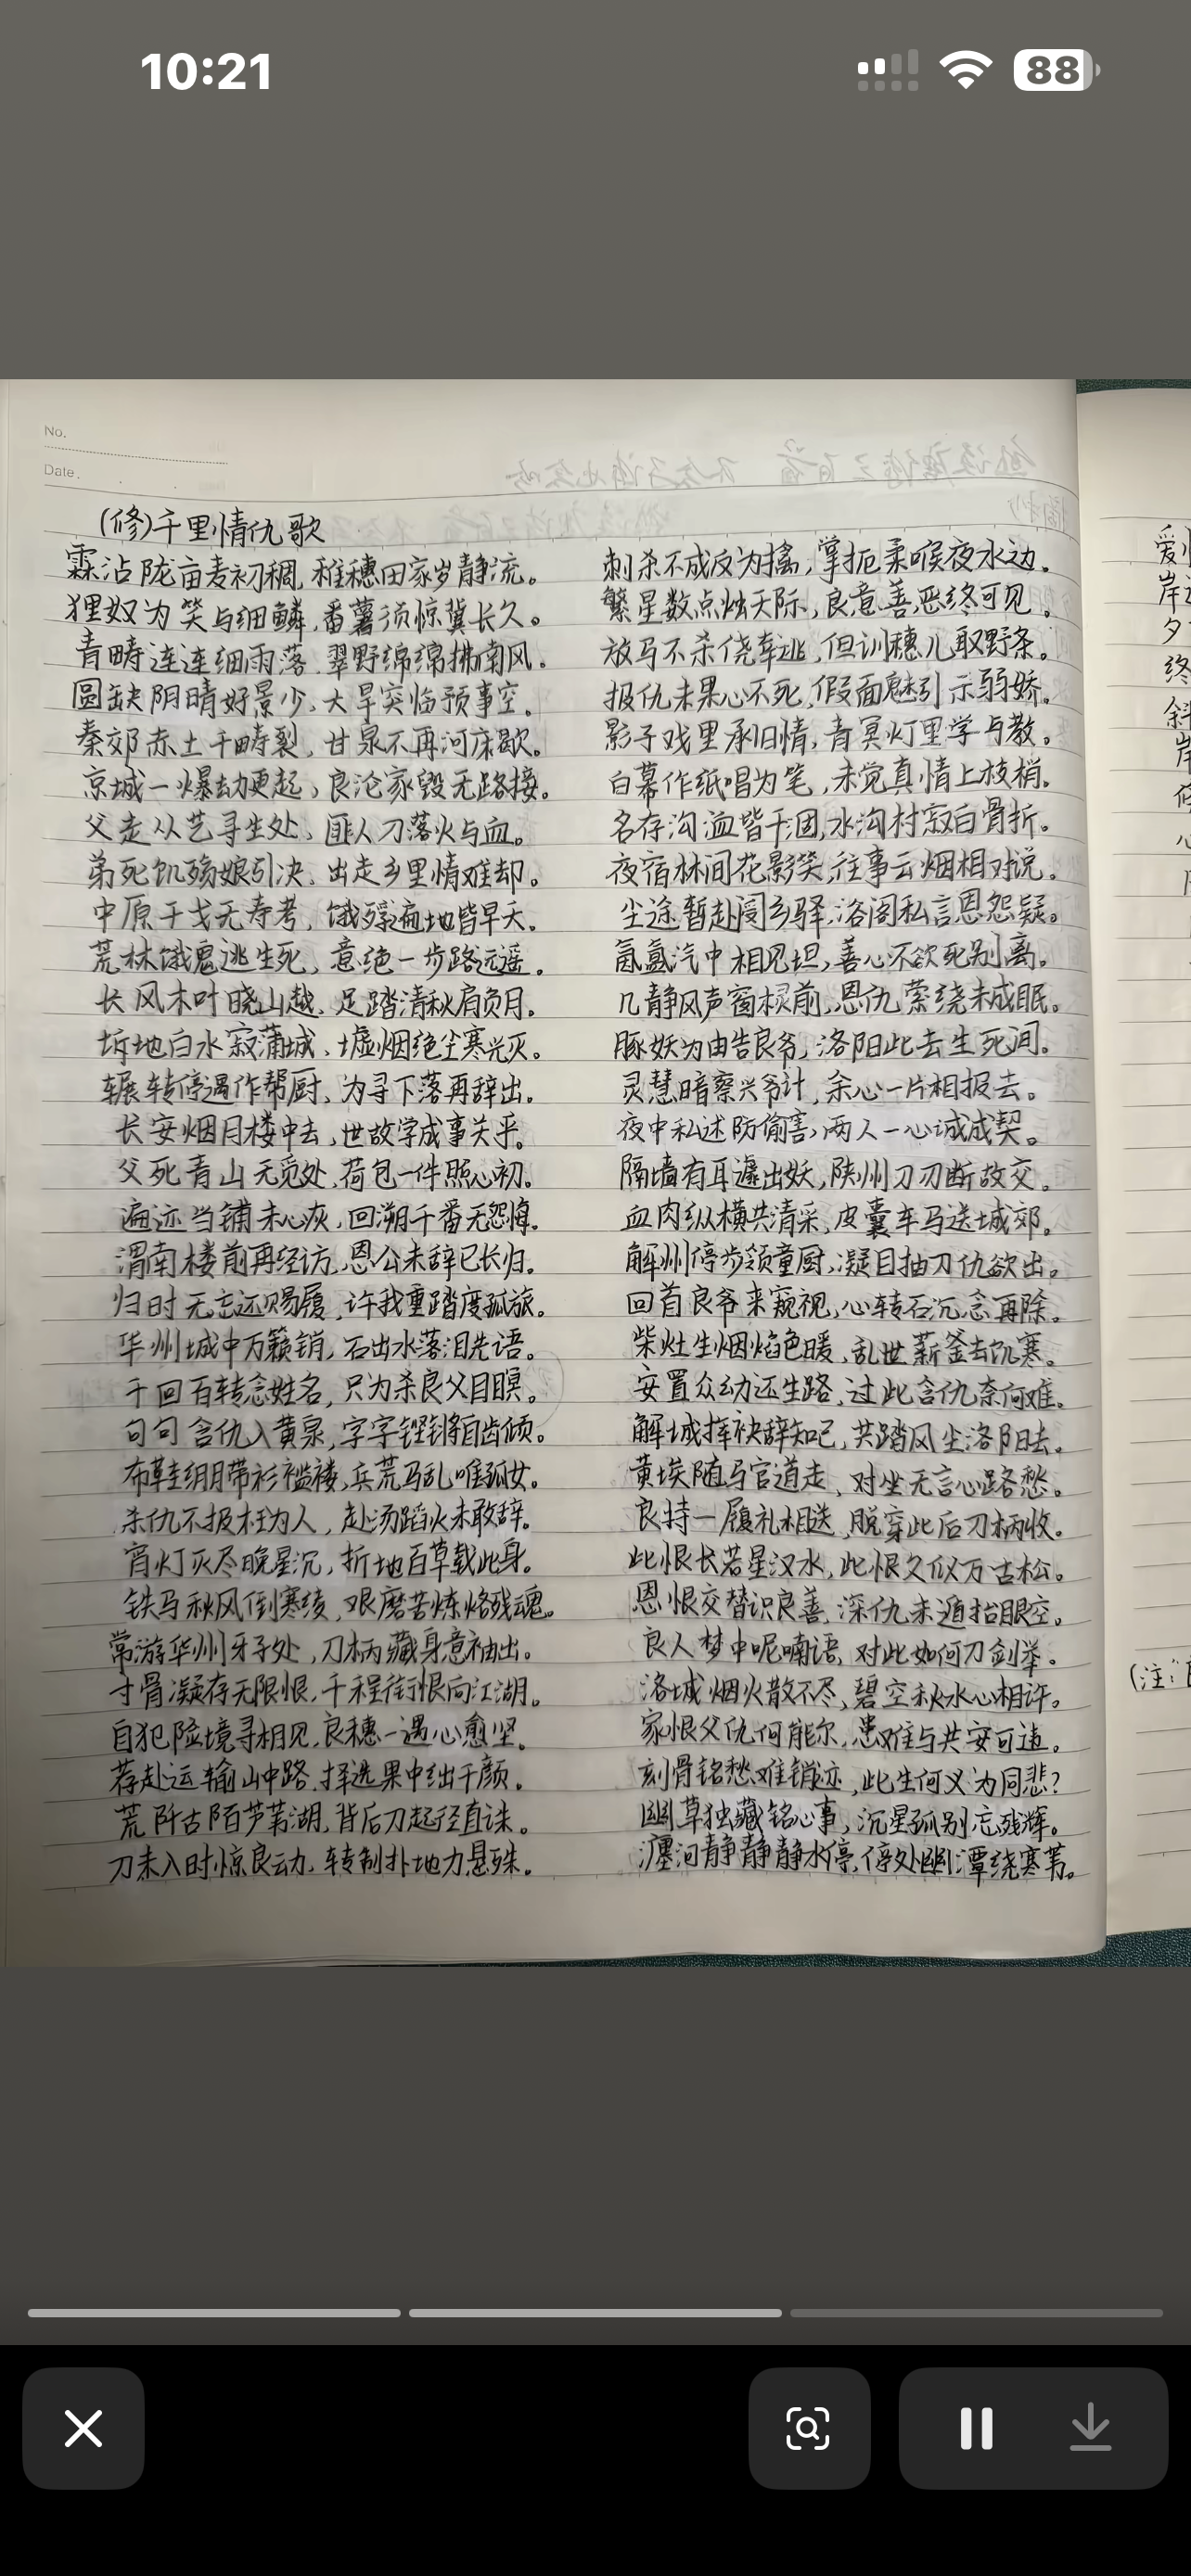 10:21
88
No.
Date.
(修)千里情仇歌
霖沾陇亩麦初稠,稚穗田家岁静流。
狸奴为笑与细鳞,番薯须惊冀长久。
青畴连连细雨落,翠野绵绵拂南风。
圆缺阴晴好景少,大旱突临预事空。
秦郊赤土千畴裂,甘泉不再河床歇。
京城一爆劫更起,良沦家毁无路接。
父走从艺寻生处,匪人刀落火与血。
弟死饥殇娘引决,出走乡里情难却。
中原干戈无寿考,饿殍遍地皆早夭。
荒林饿鬼逃生死,意绝一步路远遥。
长风木叶晓山越,足踏清秋肩负月。
坼地白水寂蒲城,墟烟绝尘寒光灭。
辗转停遇作帮厨,为寻下落再辞出。
长安烟月楼中去,世故学成事关乎。
父死青山无觅处,荷包一件照心初。
遍迹当铺未心灰,回溯千番无怨悔。
渭南楼前再经访,恩公未辞已长归。
归时无忘还赐履,许我重踏度孤旅。
华州城中万籁销,石出水落泪先语。
千回百转念姓名,只为杀良父目瞑。
句句含仇入黄泉,字字铿锵自齿倾。
布鞋绷带衫褴褛,兵荒马乱唯孤女。
杀仇不报枉为人,赴汤蹈火未敢辞。
宵灯灭尽晚星沉,折地百草载此身。
铁马秋风倒寒绫,艰磨苦炼烙残魂。
常游华州牙子处,刀柄藏身意袖出。
寸骨凝存无限恨,千程衔恨向江湖。
自犯险境寻相见,良穗一遇心愈坚。
荐赴运输山中路,择选果中绌于颜。
荒阡古陌芦苇湖,背后刀起径直诛。
刀未入时惊良动,转制扑地力悬殊。
刺杀不成反为擒,掌扼柔喉夜水边。
繁星数点烛天际,良意善恶终可见。
放马不杀侥幸逃,但训穗儿取野条。
报仇未果心不死,假面魅引示弱娇。
影子戏里承旧情,青冥灯里学与教。
白幕作纸唱为笔,未觉真情上枝梢。
名存沟洫皆干涸,水沟村寂白骨折。
夜宿林间花影笑,往事云烟相对说。
尘途暂赴阌乡驿,洛阁私言恩怨疑。
氤氲汽中相见坦,善心不欲死别离。
几静风声窗棂前,恩仇萦绕未成眠。
豚妖为由告良爷,洛阳此去生死间。
灵慧暗察兴爷计,余心一片相报去。
夜中私述防偷害,两人一心诚成契。
隔墙有耳遽出妖,陕州刀刃断故交。
血肉纵横共清采,皮囊车马送城郊。
解州停步领童厨,凝目抽刀仇欲出。
回首良爷来窥视,心转石沉念再除。
柴灶生烟焰色暖,乱世薪釜去饥寒。
安置众幼还生路,过此含仇奈何难。
解城挥袂辞知己,共踏风尘洛阳去。
黄埃随马官道走,对坐无言心路愁。
良持一履礼相送,脱穿此后刀柄收。
此恨长若星汉水,此恨久似万古松。
恩恨交替识良善,深仇未遁抬眼空。
良人梦中呢喃语,对此如何刀剑举。
洛城烟火散不尽,碧空秋水心相许。
家恨父仇何能尔,患难与共安可违。
刻骨铭愁难销迹,此生何义为同悲?
幽草独藏铭心事,沉星孤别忘残辉。
瀍河静静静水停,停处幽潭绕寒苇。
爱
岸
夕
终
斜
岸
心
(注: